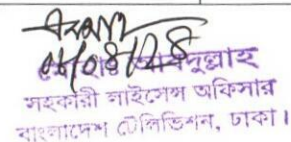 ০৮/০৪/২৪
আবদুল্লাহ
সহকারী লাইসেন্স অফিসার
বাংলাদেশ টেলিভিশন, ঢাকা।